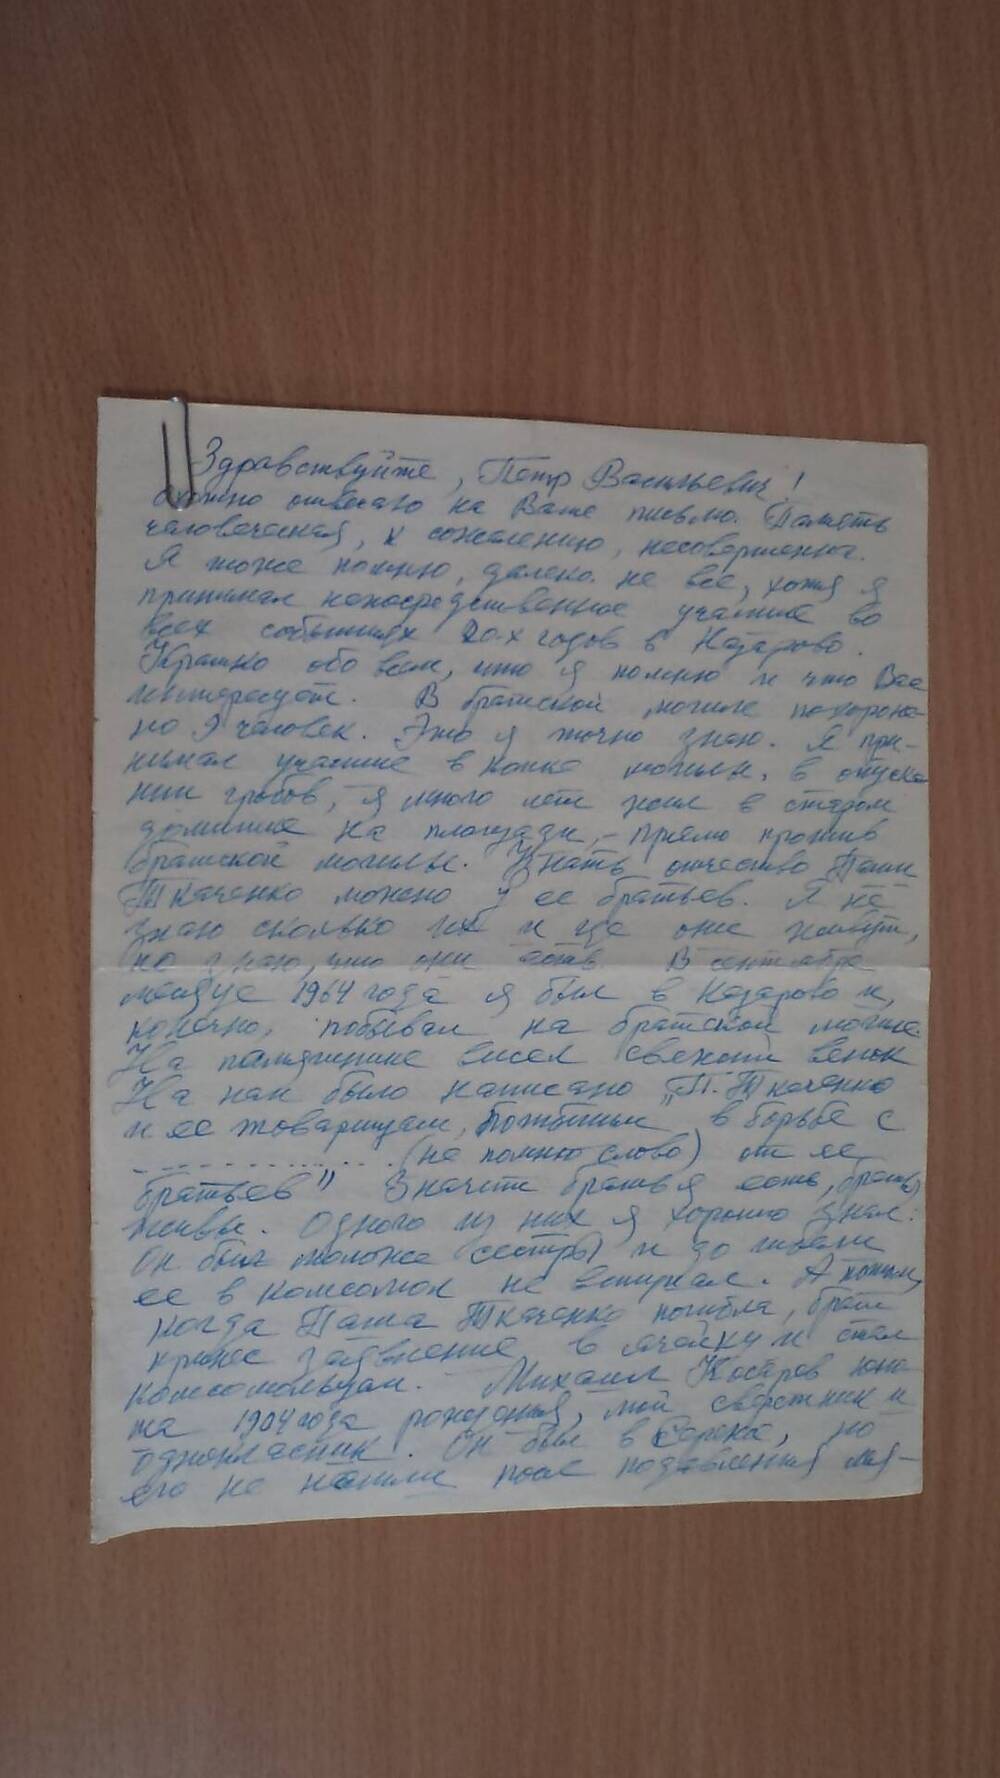 Здравствуйте, Петр Васильевич!
Охотно отвечаю на Ваше письмо. Память
человеческая, к сожалению, несовершенна.
Я тоже помню, далеко не все, хотя я
принимал непосредственное участие во
всех событиях 20-х годов в Назарово.
Кратко обо всем, что я помню и что Вас
интересует. В братской могиле похороне-
но 9 человек. Это я точно знаю. Я при-
нимал участие в копке могилы, в опуска
нии гробов, я много лет жил в старом
домишке на площади, - прямо против
братской могилы. Узнать отчество Паши
Ткаченко можно у ее братьев. Я не
знаю сколько их и где они живут,
но знаю, что они есть. В сентябре
месяце 1964 года я был в Назарово и,
конечно, побывал на братской могиле.
На памятнике висел свежий венок
На нем было написано „П. Ткаченко
и ее товарищам, погибшим в борьбе с
. . . . . . . . . . . . (не помню слово) от ее
братьев" Значит братья есть, братья
живы. Одного из них я хорошо знал.
Он был моложе сестры и до гибели
ее в комсомол не вступал. А потом,
когда Паша Ткаченко погибла, брат
принес заявление в ячейку и стал
комсомольцем. Михаил Костров юно
ша 1904 года рождения, мой сверстник и
одноклассник. Он был в Сереже, но
его не нашли после подавления мя-